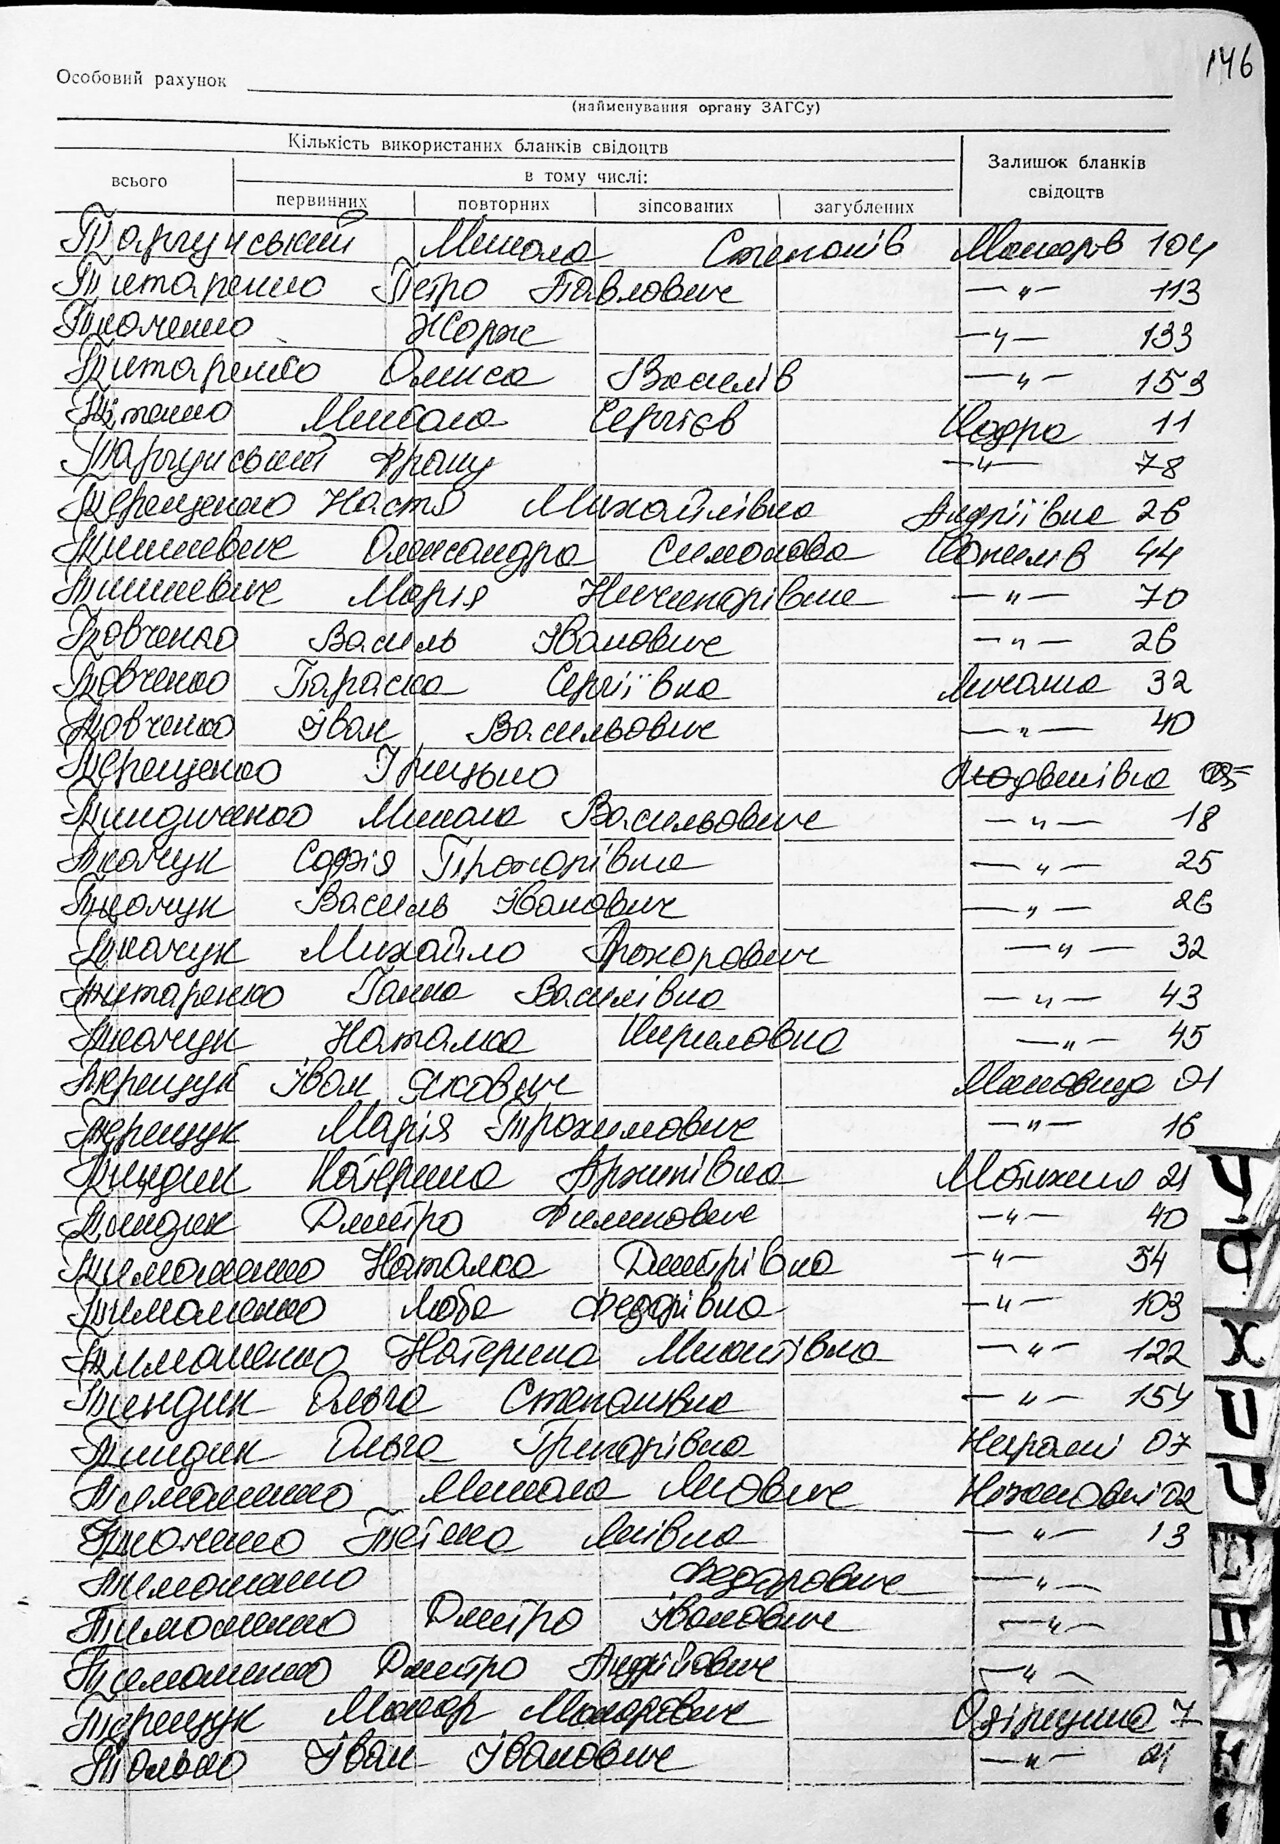 146
Особовий рахунок
(найменування органу ЗАГСу)
Кількість використаних бланків свідоцтв
Залишок бланків свідоцтв
всього
в тому числі:
первинних повторних зіпсованих загублених
Таргунський Микола Степанів Макарів 104
Титаренко Петро Павлович —"— 113
Ткаченко Жорж —"— 133
Титаренко Олекса Василів —"— 153
Микола Сергієв Кодра 11
Таргунський Франц —"— 78
Терещенко Настя Михайлівна Андріївка 26
Тишкевич Олександра Симонова 44
Тишкевич Марія Ничипорівна —"— 70
Товченко Василь Іванович —"— 26
Товченко Параска Сергіївна 32
Товченко Іван Васильович —"— 40
Терещенко Грицько Людвинівка
Тиндиченко Микола Васильович —"— 18
Ткачук Софія Прохорівна —"— 25
Ткачук Василь Іванович —"— 26
Ткачук Михайло Прохорович —"— 32
Титаренко Ганна Василівна —"— 43
Ткачук Наталка Кириловна —"— 45
Терещук Іван Якович Маковище 01
Терещук Марія Трохимович —"— 16
Тиндик Катерина Архипівна Мотижин 21
Тиндик Дмитро Филимович —"— 40
Тимошенко Наталка Дмитрівна —"— 54
Тимошенко Люба Федорівна —"— 103
Тимошенко Катерина Микитівна —"— 122
Тиндик Ольга Степанівна —"— 154
Тиндик Ольга Григорівна 07
Тимошенко Микола Якович Ніжиловичі 02
Ткаченко Тетяна —"— 13
Тимошенко Федорович —"—
Тимошенко Дмитро Іванович —"—
Тимошенко Дмитро Андрійович —"—
Терещук Макар Макарович 7
Только Іван Іванович —"— 21